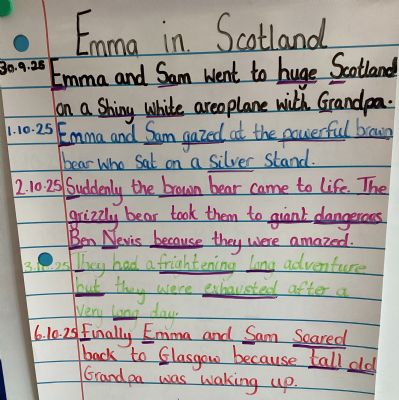 Emma in Scotland
30.9.25 Emma and Sam went to huge Scotland
on a Shiny white areoplane with Grandpa.
1.10.25 Emma and Sam gazed at the powerful brown
bear who sat on a silver stand.
2.10.25 Suddenly the brown bear came to life. The
grizzly bear took them to giant dangerous
Ben Nevis because they were amazed.
They had a frightening long adventure
but they were exhausted after a
very long day.
6.10.25 Finally Emma and Sam soared
back to Glasgow because tall old
Grandpa was waking up.